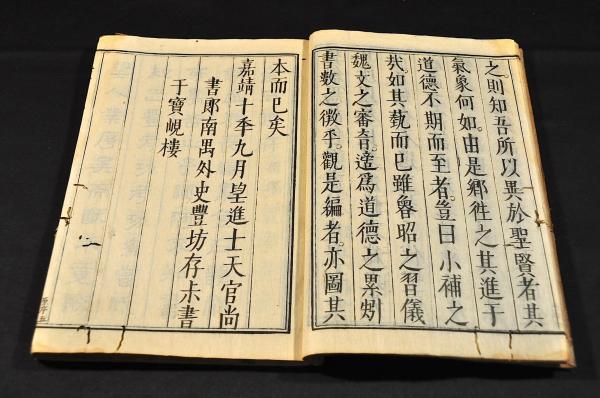 之則知吾所以異於聖賢者其
氣象何如。由是鄉徃之其進于
道德不期而至者。豈曰小補之
㢤如其藝而已雖魯昭之習儀
魏文之審音。適爲道德之累矧
書數之微乎。觀是編者。亦圖其
本而已矣
嘉靖十季九月望進士天官尚
書郎南禺外史豐坊存尗書
于寶峴樓